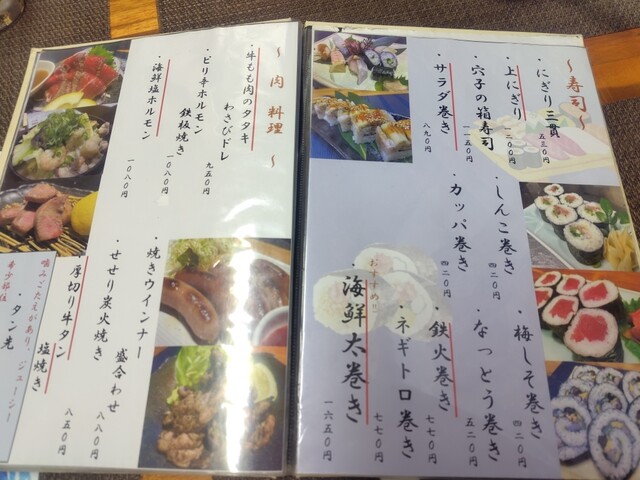 〜寿司〜
・にぎり三貫
五三〇円
・上にぎり
一二〇〇円
・穴子の箱寿司
一一五〇円
・サラダ巻き
八九〇円
・しんこ巻き
四二〇円
・カッパ巻き
四二〇円
・梅しそ巻き
四二〇円
・なっとう巻き
五二〇円
・鉄火巻き
七七〇円
・ネギトロ巻き
七七〇円
おすすめ!!
・海鮮太巻き
一六五〇円
〜肉料理〜
・牛もも肉のタタキ
わさびドレ
九五〇円
・ピリ辛ホルモン
鉄板焼き
一〇八〇円
・海鮮塩ホルモン
一〇八〇円
・焼きウインナー
盛合わせ
八八〇円
・せせり炭火焼き
八八〇円
・厚切り牛タン
塩焼き
八五〇円
噛みごたえがあり、ジューシー
希少部位
・タン先